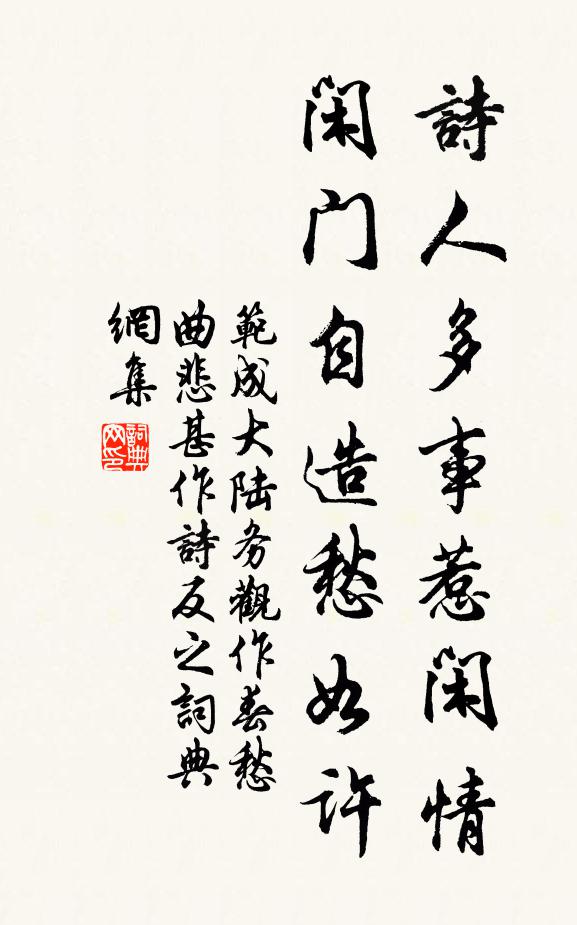 詩人多事惹閑情
閑门自造愁如许
範成大陆务觀作春愁
曲悲甚作詩反之詞典
網集
詞典
网印